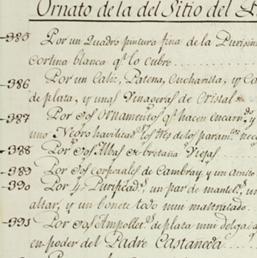 Ornato de la del Sitio del
985 Por un Quadro pintura fina de la Purisim
cortina blanca qe. lo cubre
986 Por un Caliz, Patena, Cucharilla, y
de plata, y unas Vinageras de Cristal
987 Por dos Ornamentos qe. hacen
uno Negro
988 Por dos Albas de bretaña Viejas
989 Por dos corporales de Cambray, y un amito
990 Por 4 Purificads. un par de manteles, un
altar, y un bonete todo muy maltratado
991 Por dos Ampolletas de plata muy delgada
en poder del Padre Castaneda